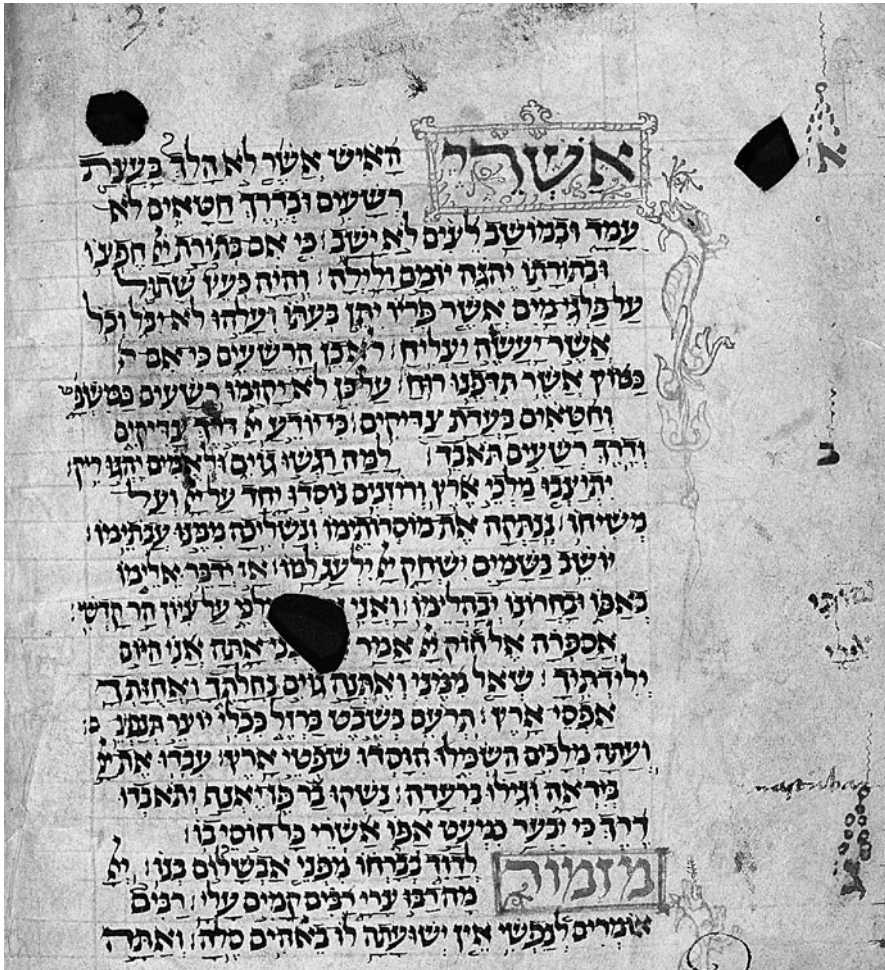 אשרי האיש אשר לא הלך בעצת
רשעים ובדרך חטאים לא
עמד ובמושב לצים לא ישב: כי אם בתורת יי חפצו
ובתורתו יהגה יומם ולילה: והיה כעץ שתול
על פלגי מים אשר פריו יתן בעתו ועלהו לא יבול וכל
אשר יעשה יצליח: לא כן הרשעים כי אם
כמוץ אשר תדפנו רוח: על כן לא יקומו רשעים במשפט
וחטאים בעדת צדיקים: כי יודע יי דרך צדיקים
ודרך רשעים תאבד: למה רגשו גוים ולאמים יהגו ריק:
יתיצבו מלכי ארץ ורוזנים נוסדו יחד על יי ועל
משיחו: ננתקה את מוסרותימו ונשליכה ממנו עבתימו:
יושב בשמים ישחק יי ילעג למו: אז ידבר אלימו
באפו ובחרונו יבהלימו: ואני על ציון הר קדשי:
אספרה אל חוק יי אמר אתה אני היום
ילידתיך: שאל ממני ואתנה גוים נחלתך ואחוזתך
אפסי ארץ: תרעם בשבט ברזל ככלי יוצר תנפצם:
ועתה מלכים השכילו הוסרו שפטי ארץ: עבדו את יי
ביראה וגילו ברעדה: נשקו בר פן יאנף ותאבדו
דרך כי יבער כמעט אפו אשרי כל חוסי בו:
מזמור לדוד בברחו מפני אבשלום בנו: יי
מה רבו צרי רבים קמים עלי: רבים
אומרים לנפשי אין ישועתה לו באהים סלה: ואתה
א
ב
ג